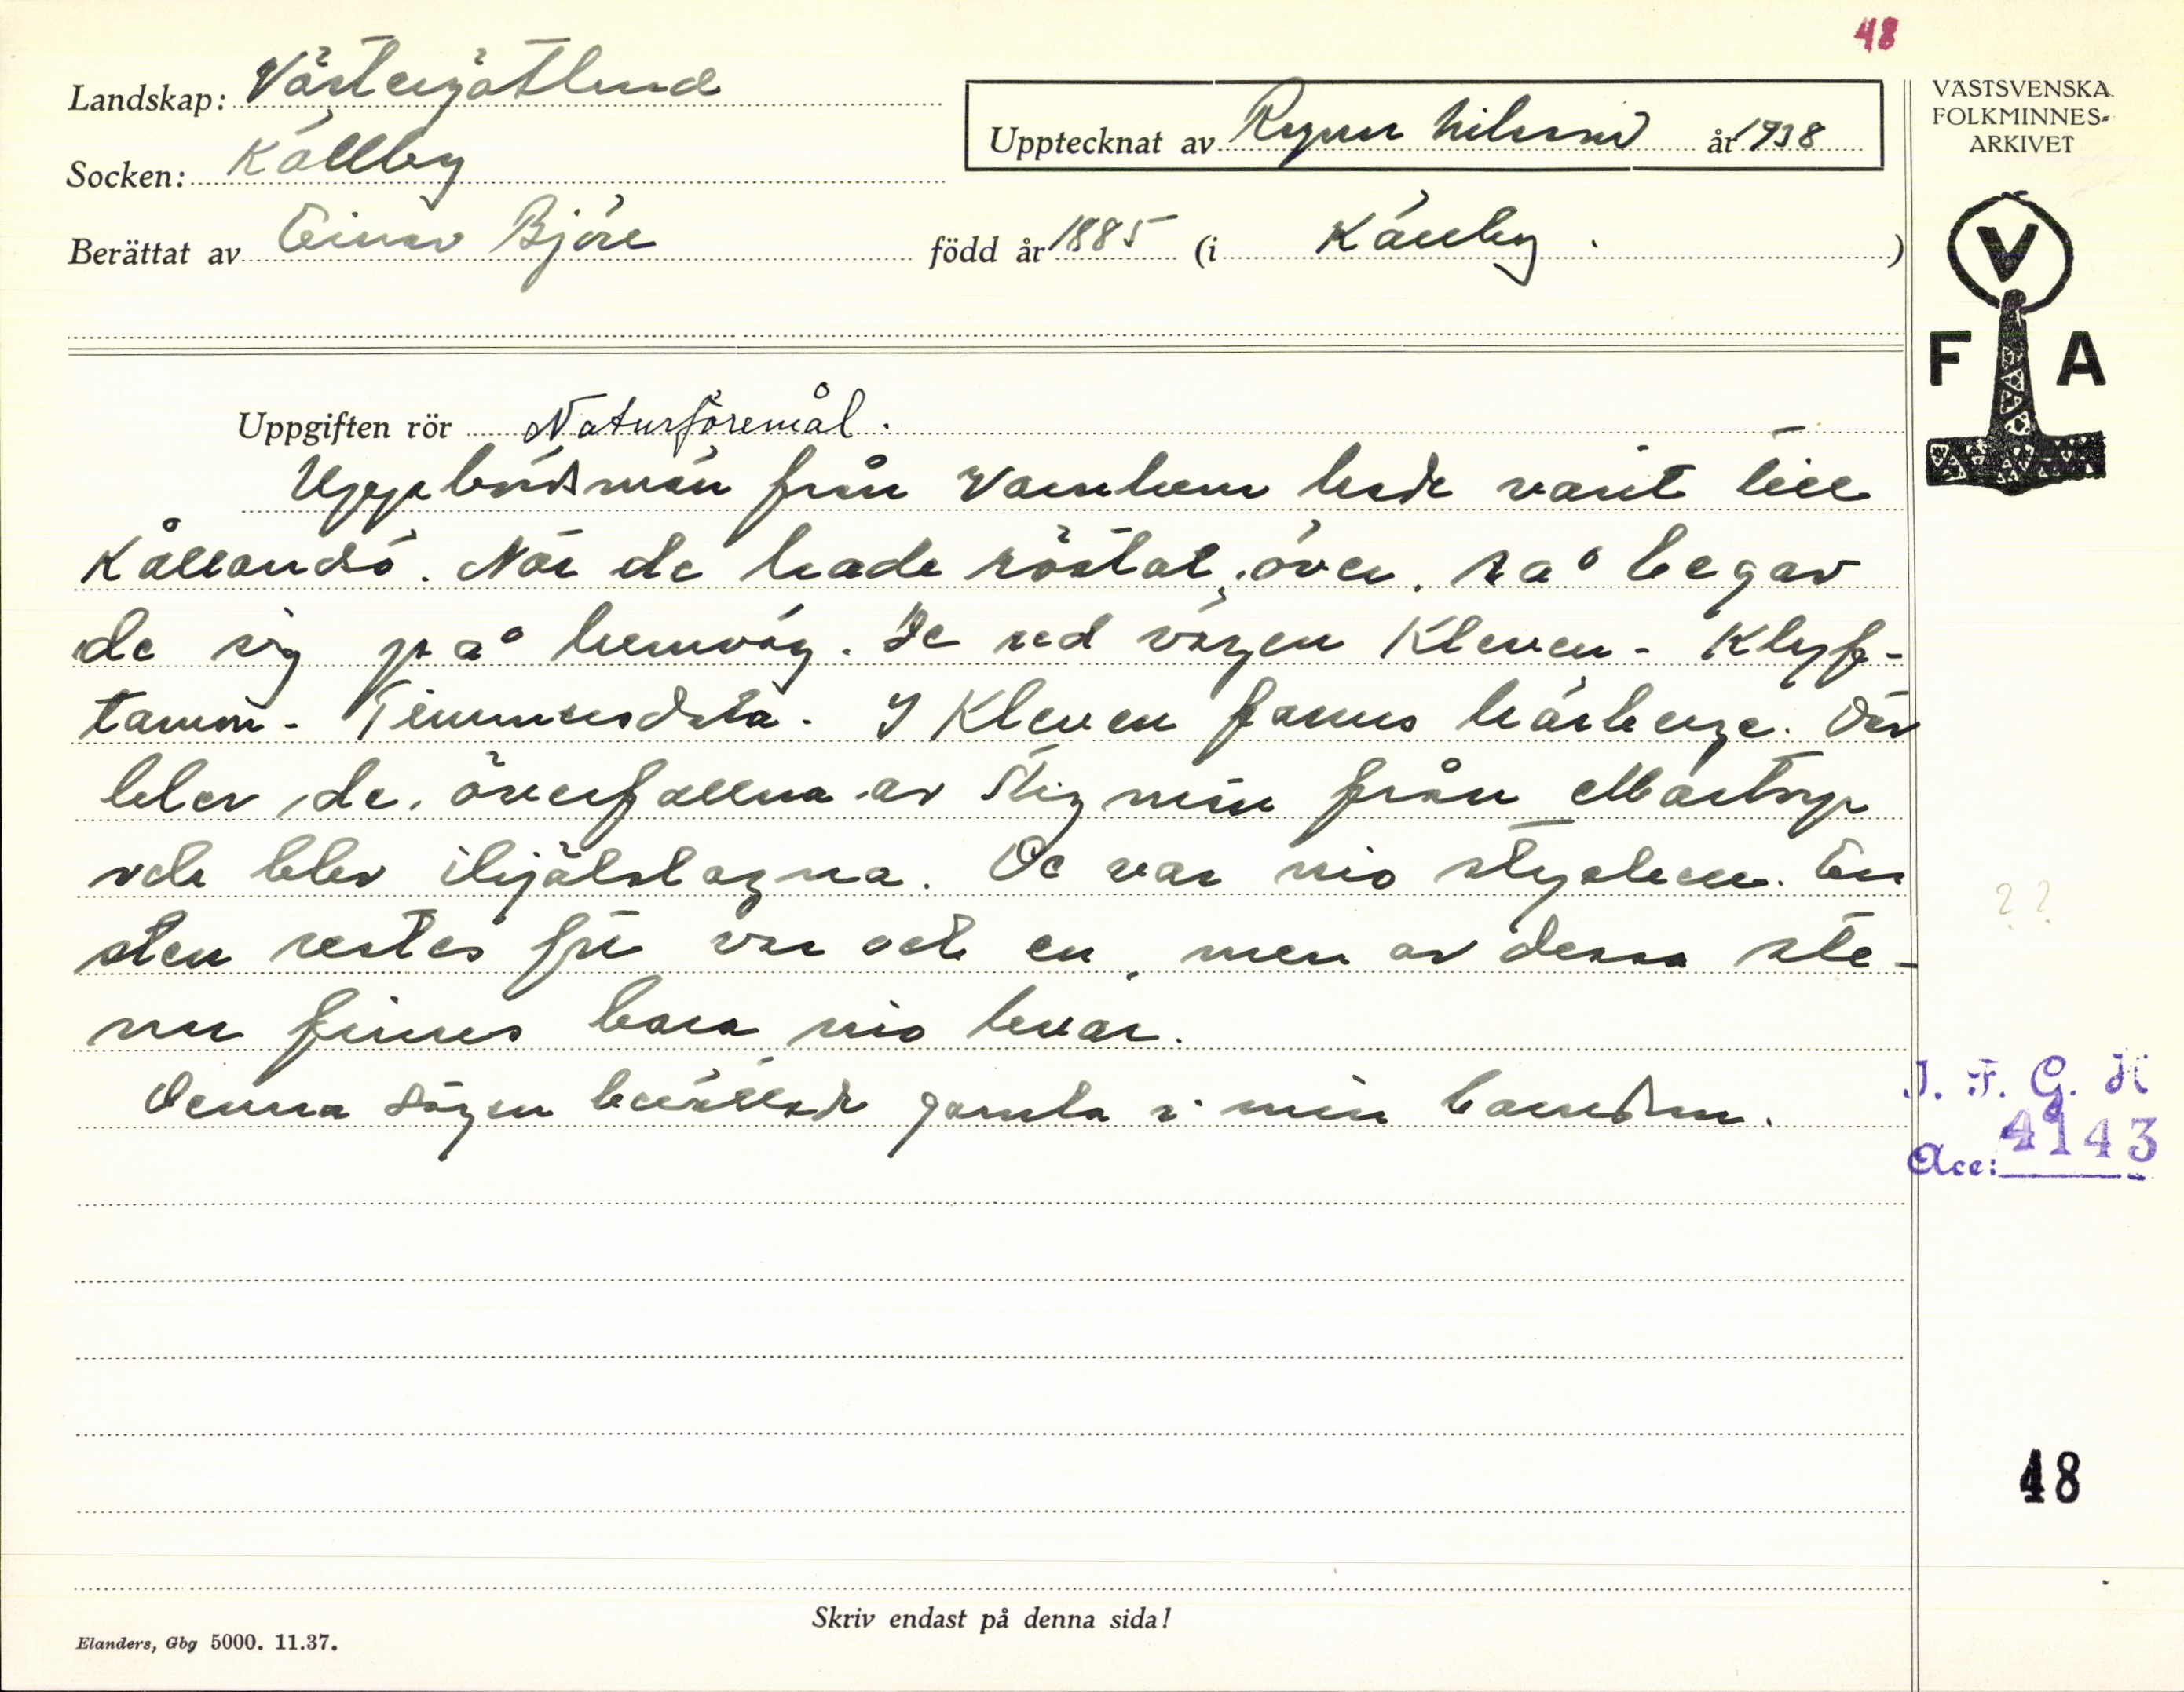 48
Landskap: Västergötland
Socken: Källby
Upptecknat av Ragnar Nilsson år 1938
Berättat av Einar Björe född år 1885 (i Källby.)
VÄSTSVENSKA
FOLKMINNES=
ARKIVET
V
F A
Uppgiften rör Naturföremål.
Uppbördsmän från Varnhem hade varit till
Kållandsö. När de hade röstat över, så begav
de sig på hemväg. De red vägen Kleven - Klyf-
tamon - Timmersdala. I Kleven fanns härberge. Där
blev de överfallna av stigmän från Martorp
och blev ihjälslagna. De var nio stycken. En
sten restes för var och en, men av dessa ste-
nar finns bara nio kvar.
??
Denna sägen berättade gamla i min barndom.
I. F. G. H
Acc: 4143
48
Skriv endast på denna sida!
Elanders, Gbg 5000. 11.37.